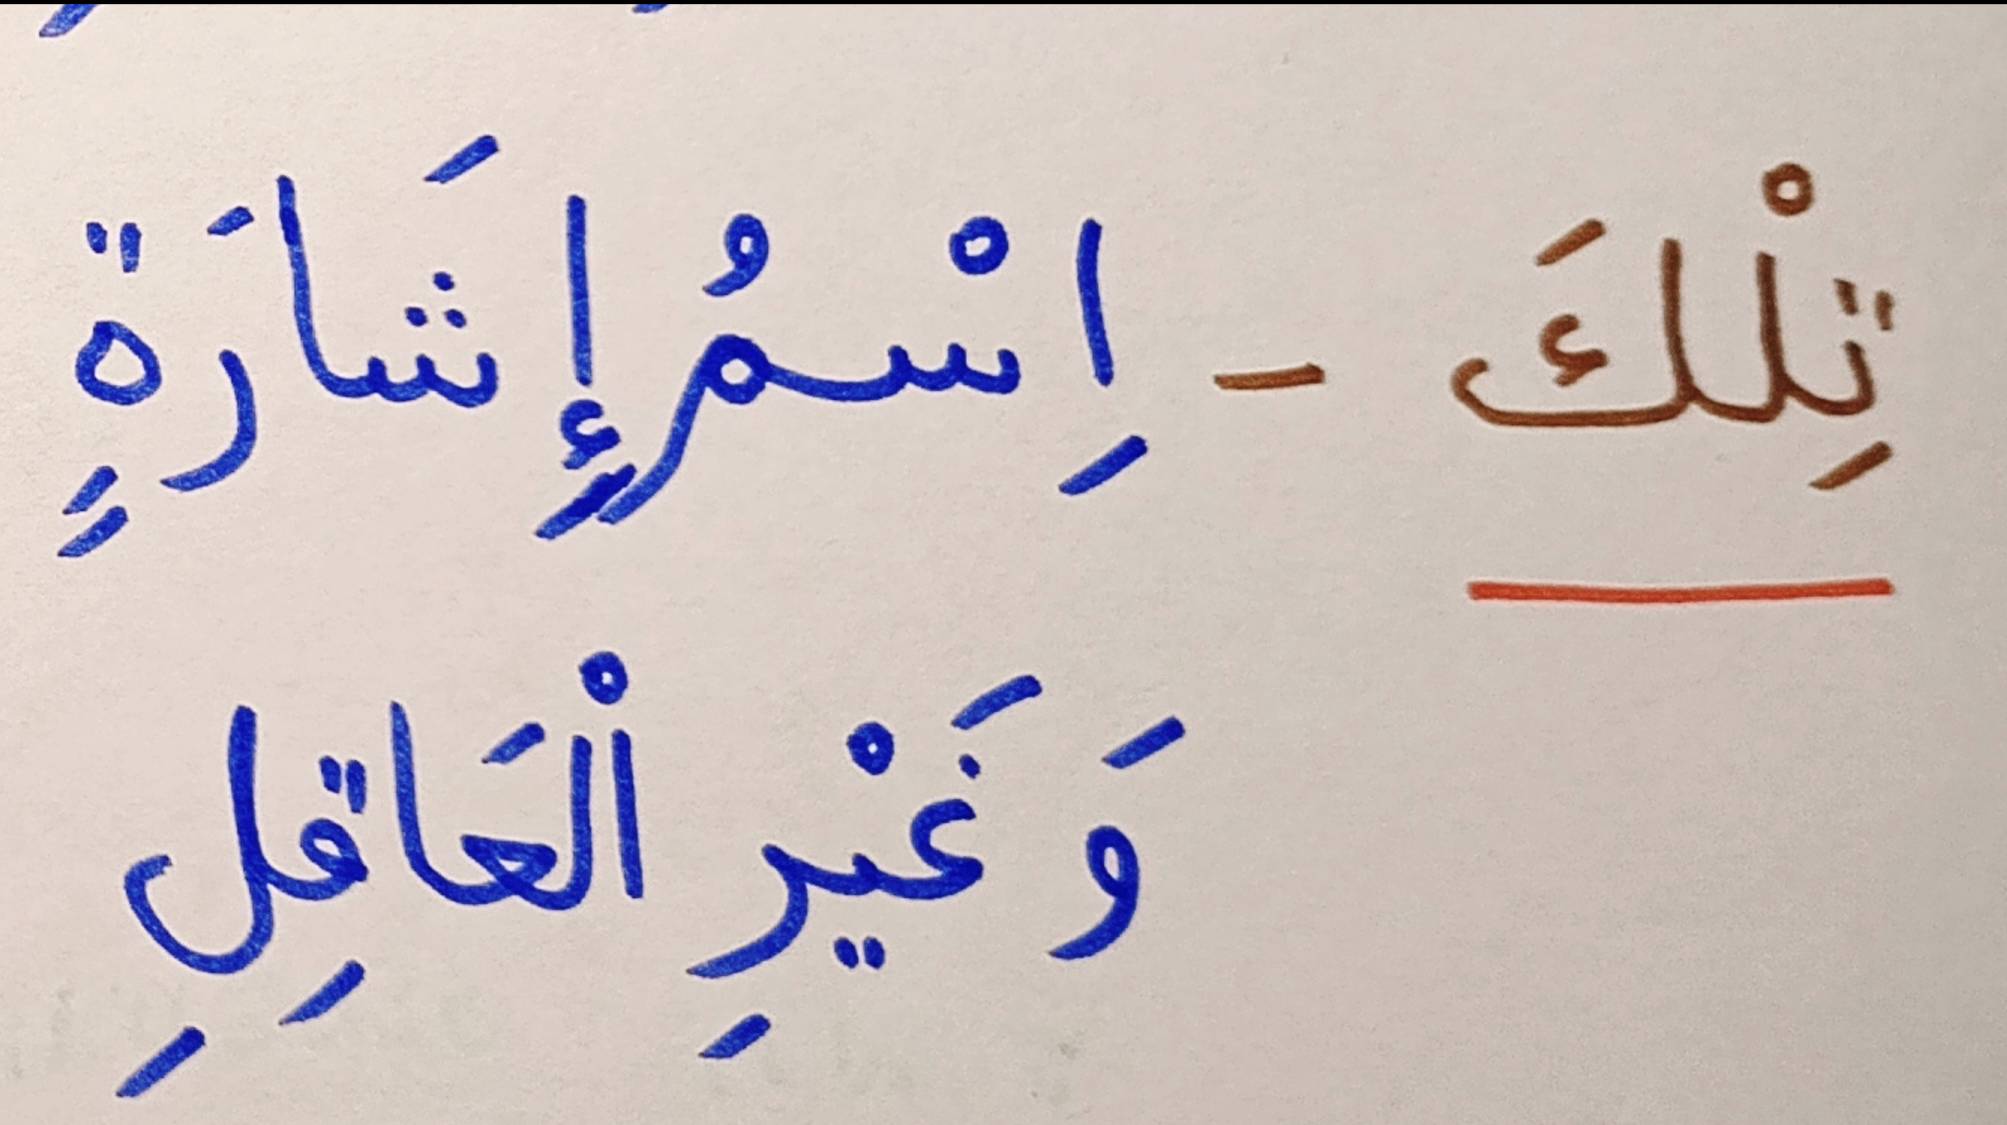 تِلْكَ - اِسْمُ إِشَارَةٍ
وَغَيْرِ الْعَاقِلِ